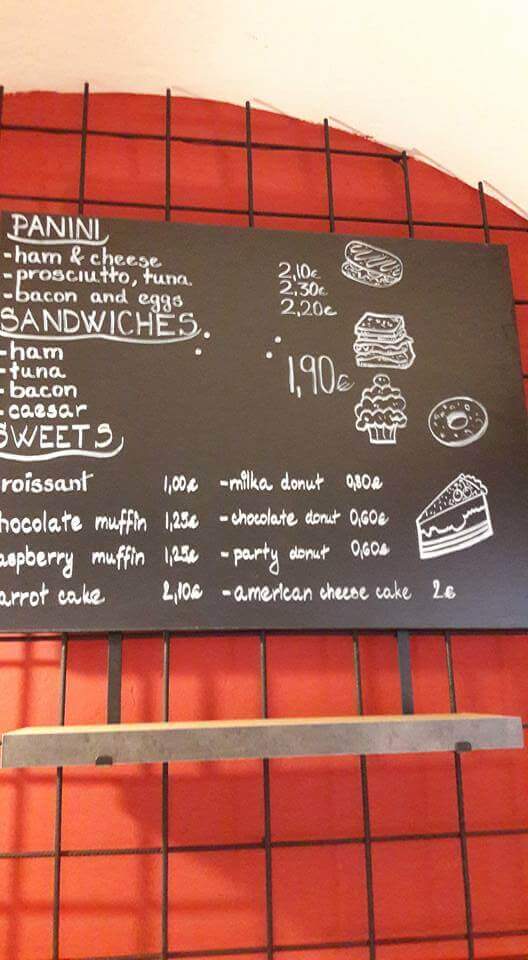 PANINI
-ham & cheese 2,10€
-prosciutto, tuna 2,30€
-bacon and eggs 2,20€
SANDWICHES:
-ham
-tuna
-bacon
-caesar
1,90€
SWEETS
roissant 1,00€ -milka donut 0,80€
hocolate muffin 1,25€ -chocolate donut 0,60€
aspberry muffin 1,25€ -party donut 0,60€
arrot cake 2,10€ -american cheese cake 2€